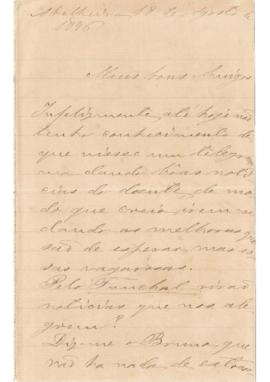 18 de Agosto de
1896
Meus bons Amigos
Infelizmente, até hoje não
tenho conhecimento de
que viesse um telegra
ma dando bôas noti
cias do doente, de mo
do que creio irem
dando as melhoras que
são de esperar, mas
vagarosas.
Pelo Funchal virão
noticias que nos ale
grem?
Dizme o Bruno que
não ha nada de